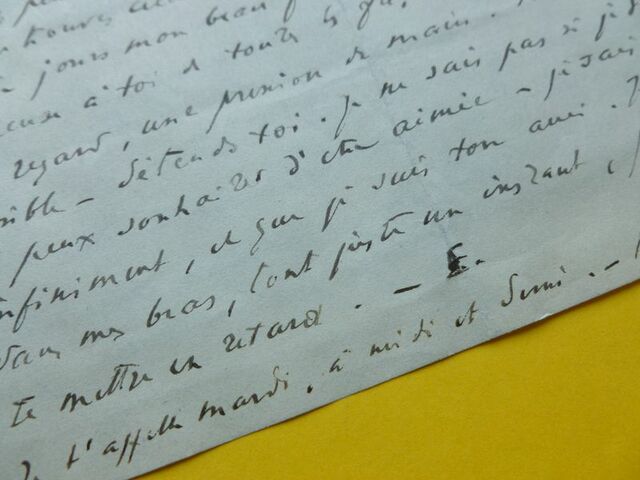 jours mon beau
à toi de toutes
regard, une pression de main.
sible – détends toi. Je ne sais pas si je
peux souhaiter d'être aimée – je sais
infiniment, et que je suis ton amie.
dans mes bras, tout juste un instant,
te mettre en retard. – E.
Je t'appelle mardi, à midi et demi. –